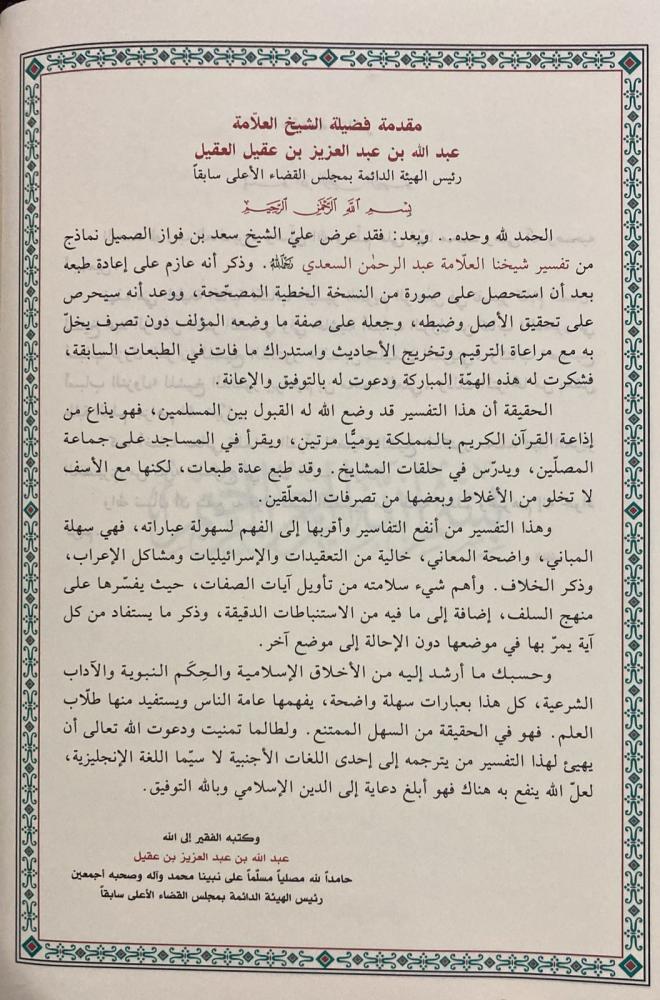 مقدمة فضيلة الشيخ العلّامة
عبد الله بن عبد العزيز بن عقيل العقيل
رئيس الهيئة الدائمة بمجلس القضاء الأعلى سابقاً
بسم الله الرحمن الرحيم
الحمد لله وحده.. وبعد: فقد عرض عليّ الشيخ سعد بن فواز الصميل نماذج
من تفسير شيخنا العلّامة عبد الرحمٰن السعدي رحمه الله. وذكر أنه عازم على إعادة طبعه
بعد أن استحصل على صورة من النسخة الخطية المصحّحة، ووعد أنه سيحرص
على تحقيق الأصل وضبطه، وجعله على صفة ما وضعه المؤلف دون تصرف يخلّ
به مع مراعاة الترقيم وتخريج الأحاديث واستدراك ما فات في الطبعات السابقة،
فشكرت له هذه الهمّة المباركة ودعوت له بالتوفيق والإعانة.
الحقيقة أن هذا التفسير قد وضع الله له القبول بين المسلمين، فهو يذاع من
إذاعة القرآن الكريم بالمملكة يوميًّا مرتين، ويقرأ في المساجد على جماعة
المصلّين، ويدرّس في حلقات المشايخ. وقد طبع عدة طبعات، لكنها مع الأسف
لا تخلو من الأغلاط وبعضها من تصرفات المعلّقين.
وهذا التفسير من أنفع التفاسير وأقربها إلى الفهم لسهولة عباراته، فهي سهلة
المباني، واضحة المعاني، خالية من التعقيدات والإسرائيليات ومشاكل الإعراب،
وذكر الخلاف. وأهم شيء سلامته من تأويل آيات الصفات، حيث يفسّرها على
منهج السلف، إضافة إلى ما فيه من الاستنباطات الدقيقة، وذكر ما يستفاد من كل
آية يمرّ بها في موضعها دون الإحالة إلى موضع آخر.
وحسبك ما أرشد إليه من الأخلاق الإسلامية والحِكَم النبوية والآداب
الشرعية، كل هذا بعبارات سهلة واضحة، يفهمها عامة الناس ويستفيد منها طلّاب
العلم. فهو في الحقيقة من السهل الممتنع. ولطالما تمنيت ودعوت الله تعالى أن
يهيئ لهذا التفسير من يترجمه إلى إحدى اللغات الأجنبية لا سيّما اللغة الإنجليزية،
لعلّ الله ينفع به هناك فهو أبلغ دعاية إلى الدين الإسلامي وبالله التوفيق.
وكتبه الفقير إلى الله
عبد الله بن عبد العزيز بن عقيل
حامداً لله مصلياً مسلّماً على نبينا محمد وآله وصحبه أجمعين
رئيس الهيئة الدائمة بمجلس القضاء الأعلى سابقاً